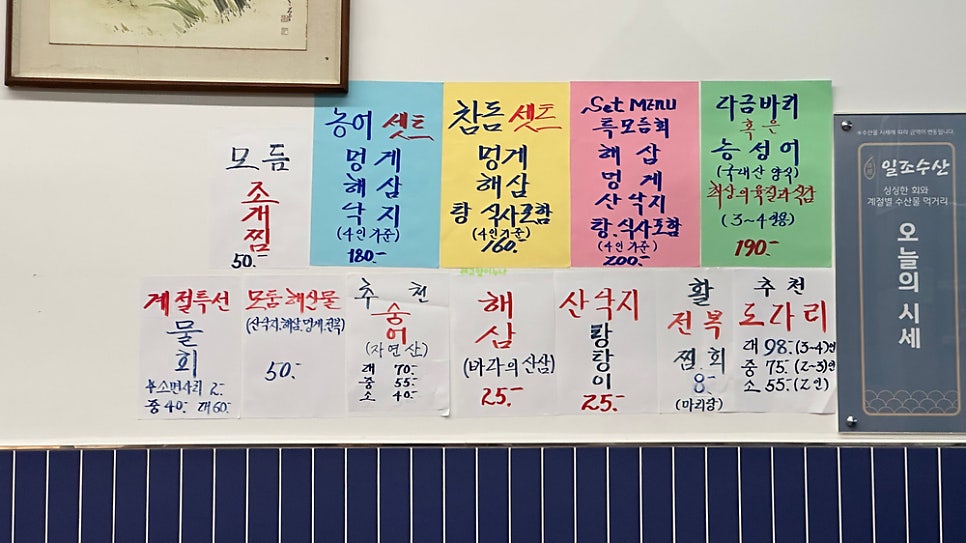 모듬
조
개
찜
50.-
농어 셋트
멍게
해삼
낙지
(4인기준)
180.-
참돔 셋트
멍게
해삼
탕 식사포함
(4인기준)
160.-
Set MENU
특모듬회
해삼
멍게
산낙지
탕.식사포함
(4인기준)
200.-
다금바리
혹은
능성어
(국내산 양식)
최상의육질과식감
(3~4인용)
190.-
계절특선
물
회
소면사리 2.-
중 40.- 대 60.-
모둠해산물
(산낙지,해삼,멍게,전복)
50.-
추천
숭
어
(자연산)
대 70.-
중 55.-
소 40.-
해
삼
(바다의산삼)
25.-
산낙지
탕
탕
이
25.-
활
전복
찜회
8.-
(마리당)
추천
도다리
대 98.-(3~4인)
중 75.-(2~3)인
소 55.-(2인)
※수산물 시세에 따라 금액이 변동됩니다.
일조수산
싱싱한 회와
계절별 수산물 먹거리
오늘의 시세